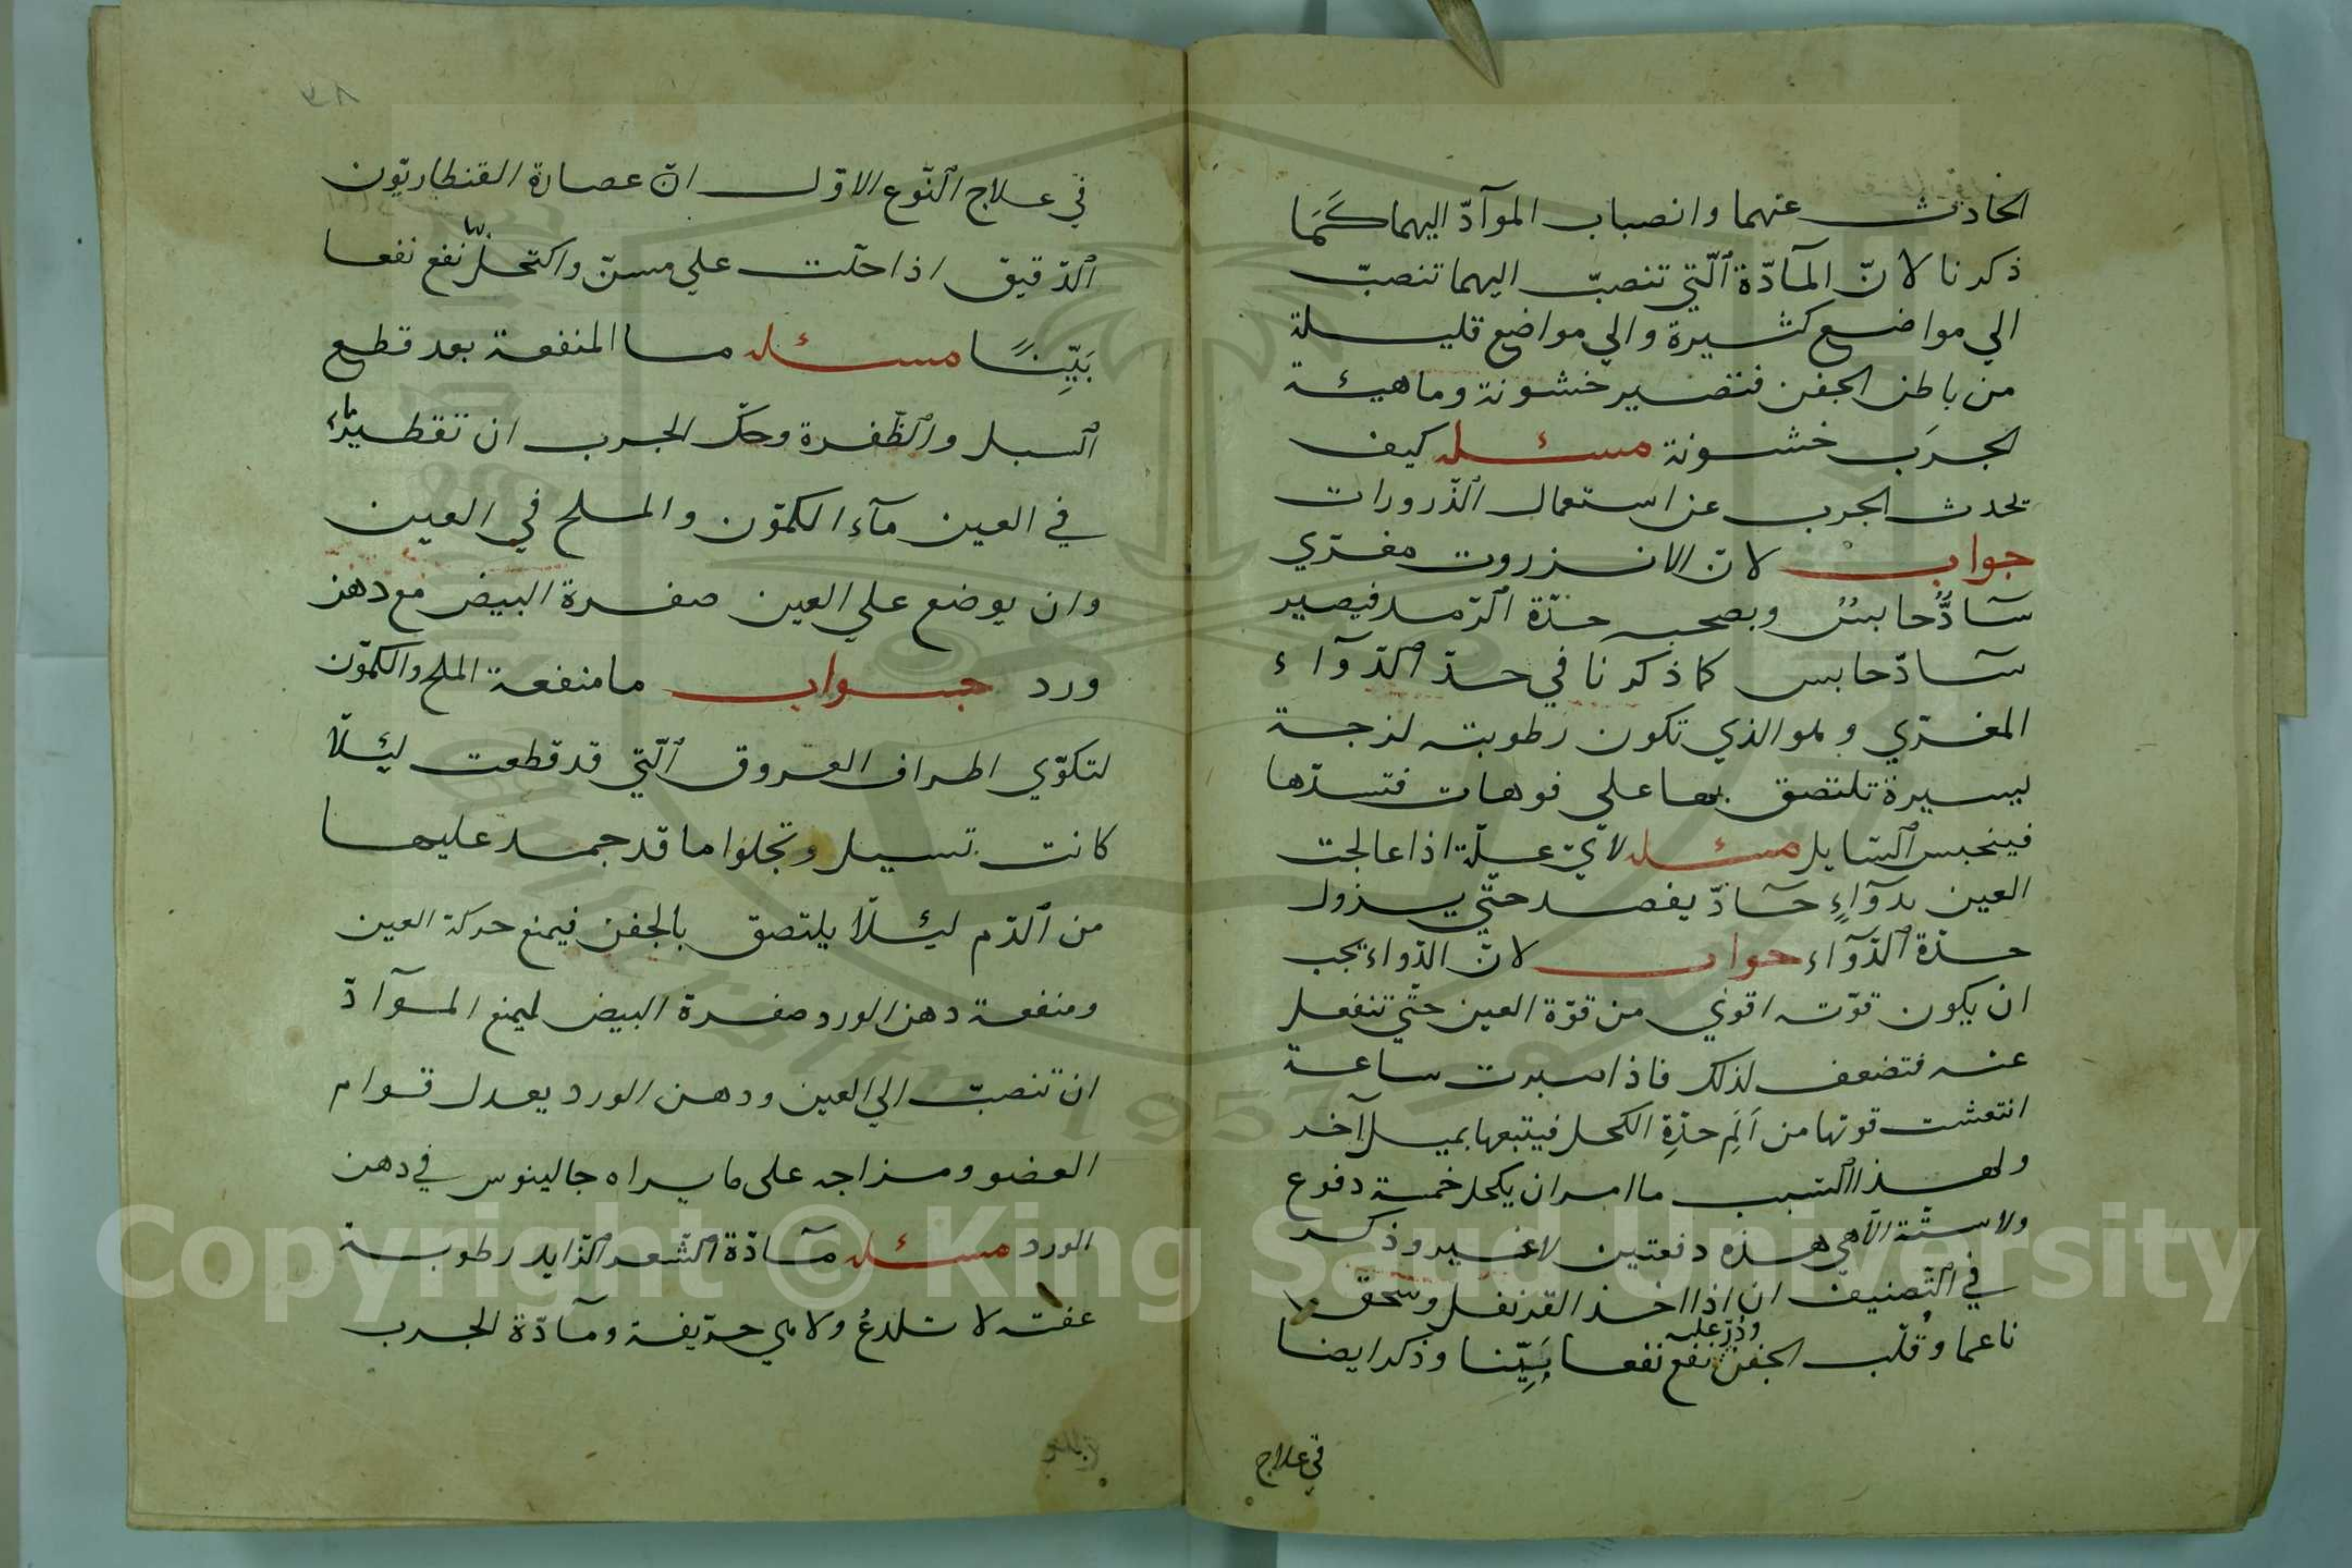 الحادث عنهما وانصباب الموآدّ اليهما كَمَا
ذكرنا لانّ المآدّة ٱلّتي تنصبّ اليهما تنصبّ
الي مواضع كثيرة والي مواضع قليلة
من باطن الجفن فتصير خشونة وماهيئة
الجرَب خشونة مسئله كيف
تحدث الجرب عن استعمال ٱلذّرورات
جواب لانّ الانزروت مغرّي
سآدٌّ حابسٌ وبصحبه حدّة ٱلرّمد فيصير
سآدّ حابس كما ذكرنا في حدّ ٱلدّوآء
المغرّي وهو الذي تكون رطوبته لزجة
يسيرة تلتصق بها على فوهات فتسدّها
فينحبس ٱلسّايل مسئله لايّ علّة اذا عالجت
العين بدوآءٍ حآدّ يفصد حتّي يزول
حدّة ٱلدّوآء جواب لانّ الدّواء يجب
ان يكون قوّته اقوي من قوّة العين حتّي تنفعل
عنه فتضعف لذلك فاذا صبرت ساعة
انتعشت قوتها من اَلَمِ حدّةِ الكحل فيتبعها بميل آخر
ولهذا ٱلسّبب ما امر ان يكحل خمسة دفوع
ولا ستّة الّا هي هذه دفعتين لاغير وذكر
في ٱلتّصنيف ان اذا اخذ القرنفل وسحق
ناعما وقُلب الجفن وذُرّ عليه نفع نفعا بَيِّنا وذكر ايضا
في علاج
٣٨
في علاج ٱلنّوع الاوّل انّ عصارة القنطاريّون
ٱلدّقيق اذا حلّت علي مسنّ واكتحل بها نفع نفعا
بَيِّنًا مسئله ما المنفعة بعد قطع
ٱلسبل وٱلظّفرة وحكّ الجرب ان تقطير ماء
في العين مآء الكمّون والملح في العين
وان يوضع علي العين صفرة البيض مع دهن
ورد جواب ما منفعة الملح والكمّون
لتكوّي اطراف العروق ٱلّتي قد قطعت ليئلّا
كانت تسيل وتجلوا ما قد جمد عليها
من ٱلدّم ليئلّا يلتصق بالجفن فيمنع حركة العين
ومنفعة دهن الورد صفرة البيض ليمنع الموآدّ
ان تنصبّ الي العين ودهن الورد يعدل قوام
العضو ومزاجه على ما يراه جالينوس في دهن
الورد مسئله مآدّة ٱلشّعر ٱلزّايد رطوبة
عفنة لا تلدغُ ولا هي حرّيفة ومآدّة الجرب